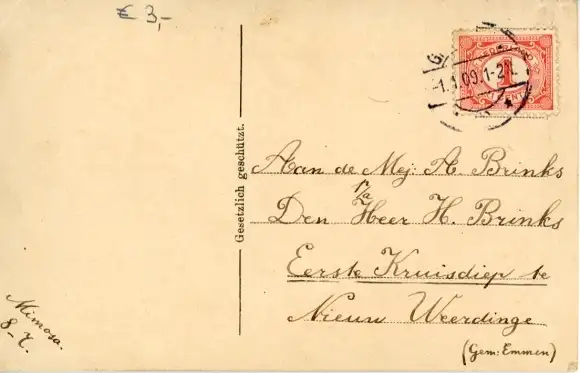 € 3,-
NEDERLAND
1
CENT
-1.1.09.1-2N.
Gesetzlich geschützt.
Aan de Mej: A. Brinks
p/a
Den Heer H. Brinks
Eerste Kruisdiep te
Nieuw Weerdinge
(Gem: Emmen)
Mimosa.
8-7.